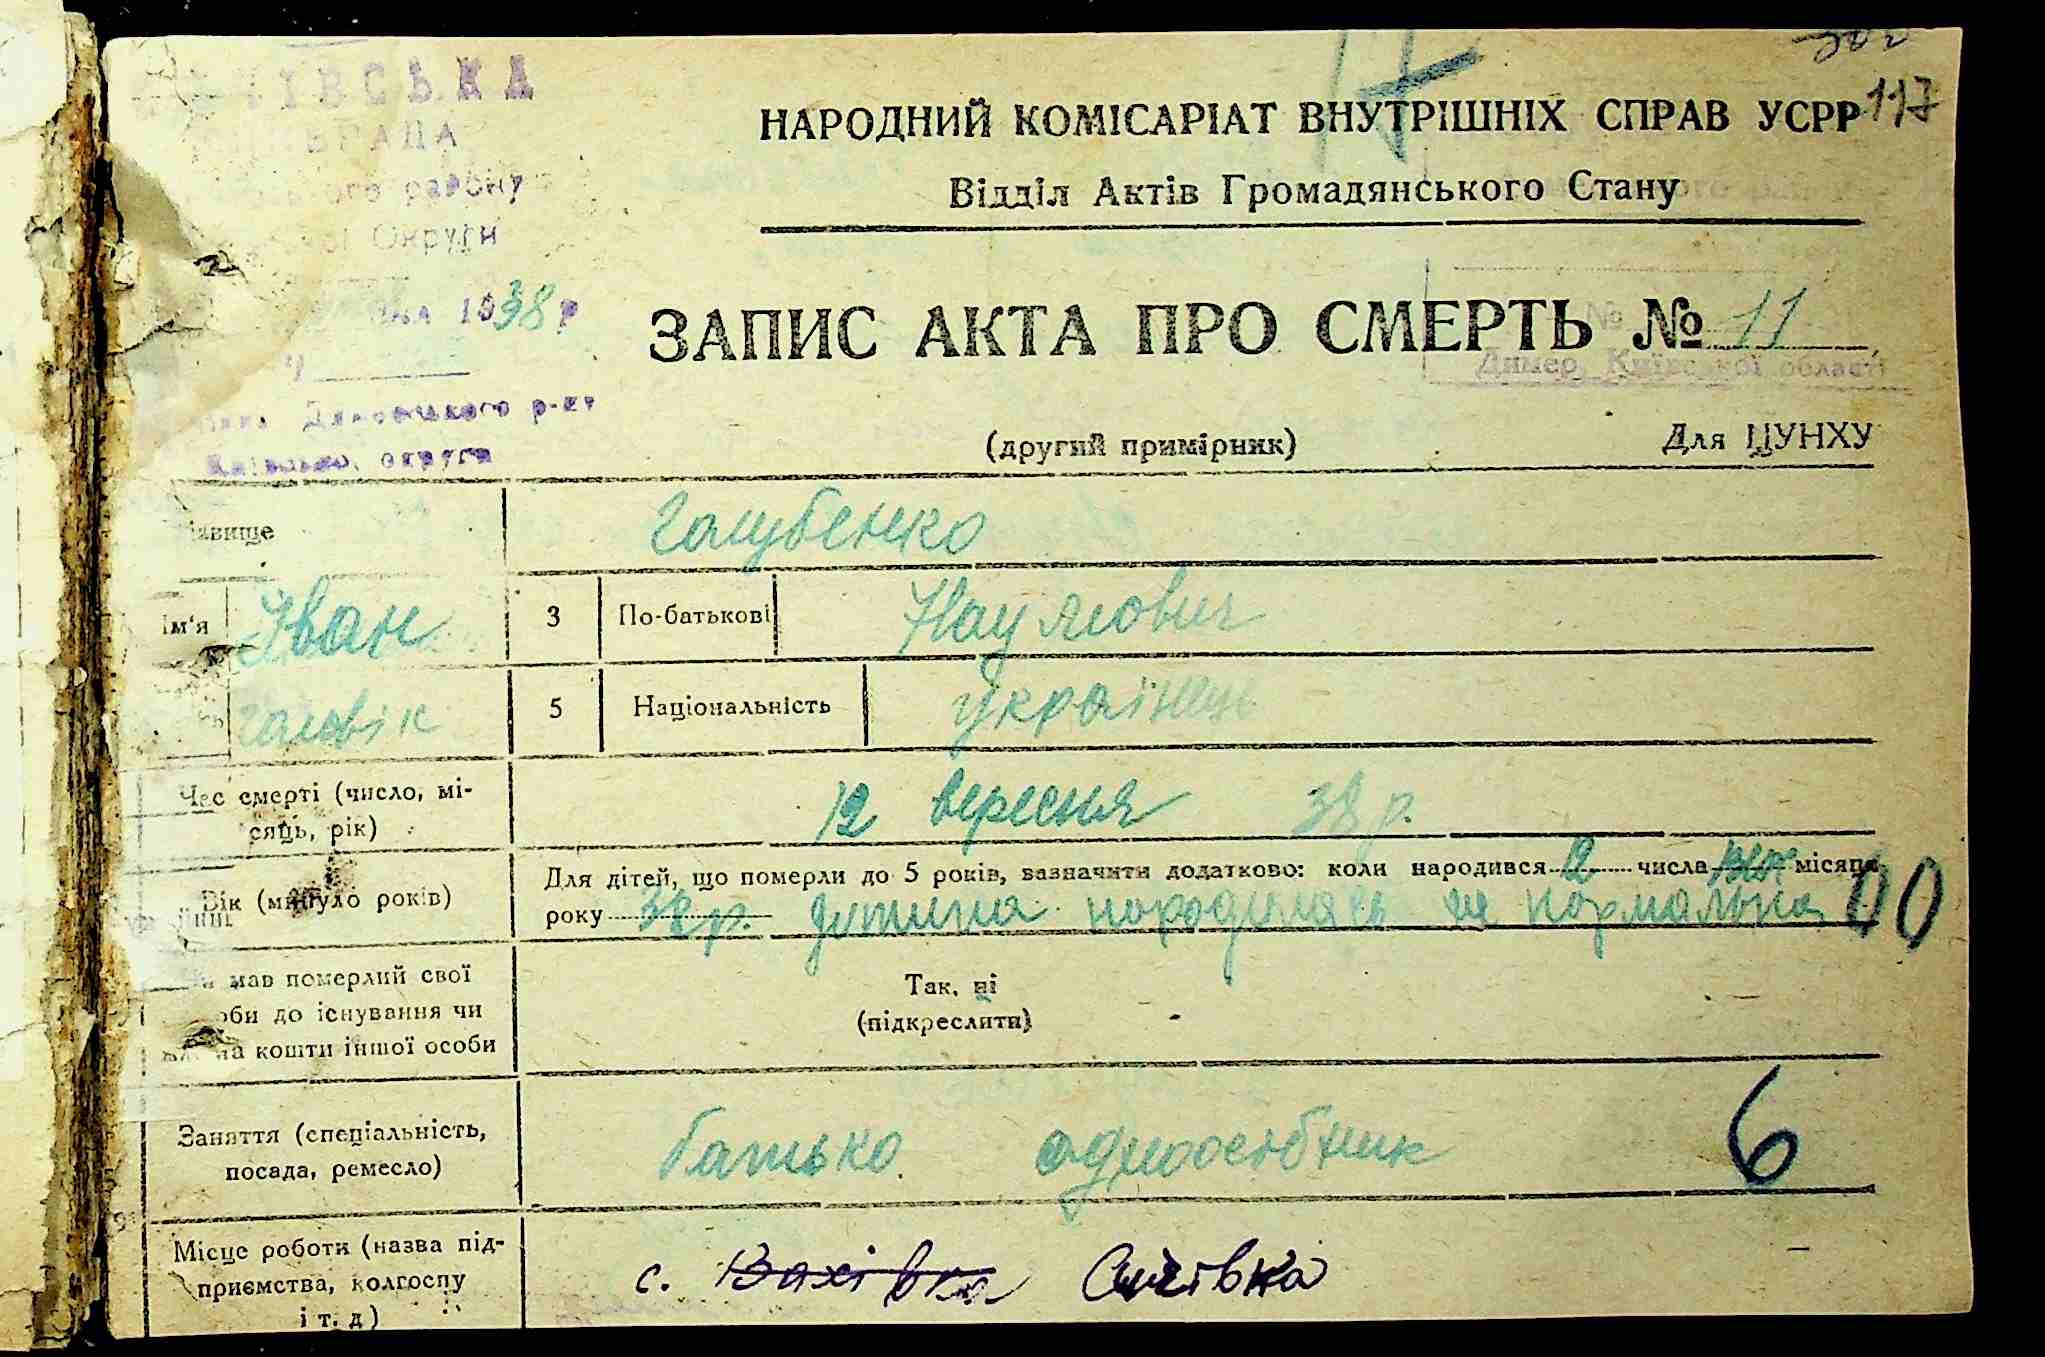 117
НАРОДНИЙ КОМІСАРІАТ ВНУТРІШНІХ СПРАВ УСРР
Відділ Актів Громадянського Стану
району
Округи
1938 р
ЗАПИС АКТА ПРО СМЕРТЬ № 11
Димер, Київської області
р-ну
округи
(другий примірник) Для ЦУНХУ
Голубенко
Ім'я Іван 3 По-батькові Наумович
чоловік 5 Національність українець
Час смерті (число, мі-
сяць, рік)
12 вересня 38 р.
Вік (минуло років)
Для дітей, що померли до 5 років, зазначити додатково: коли народився 12 числа місяця
року 38 р. дитина народилась не нормальна 00
мав померлий свої
до існування чи
на кошти іншої особи
Так, ні
(підкреслити)
Заняття (спеціальність,
посада, ремесло)
батько одноосібник 6
Місце роботи (назва під-
приємства, колгоспу
і т. д)
с. Вахівка